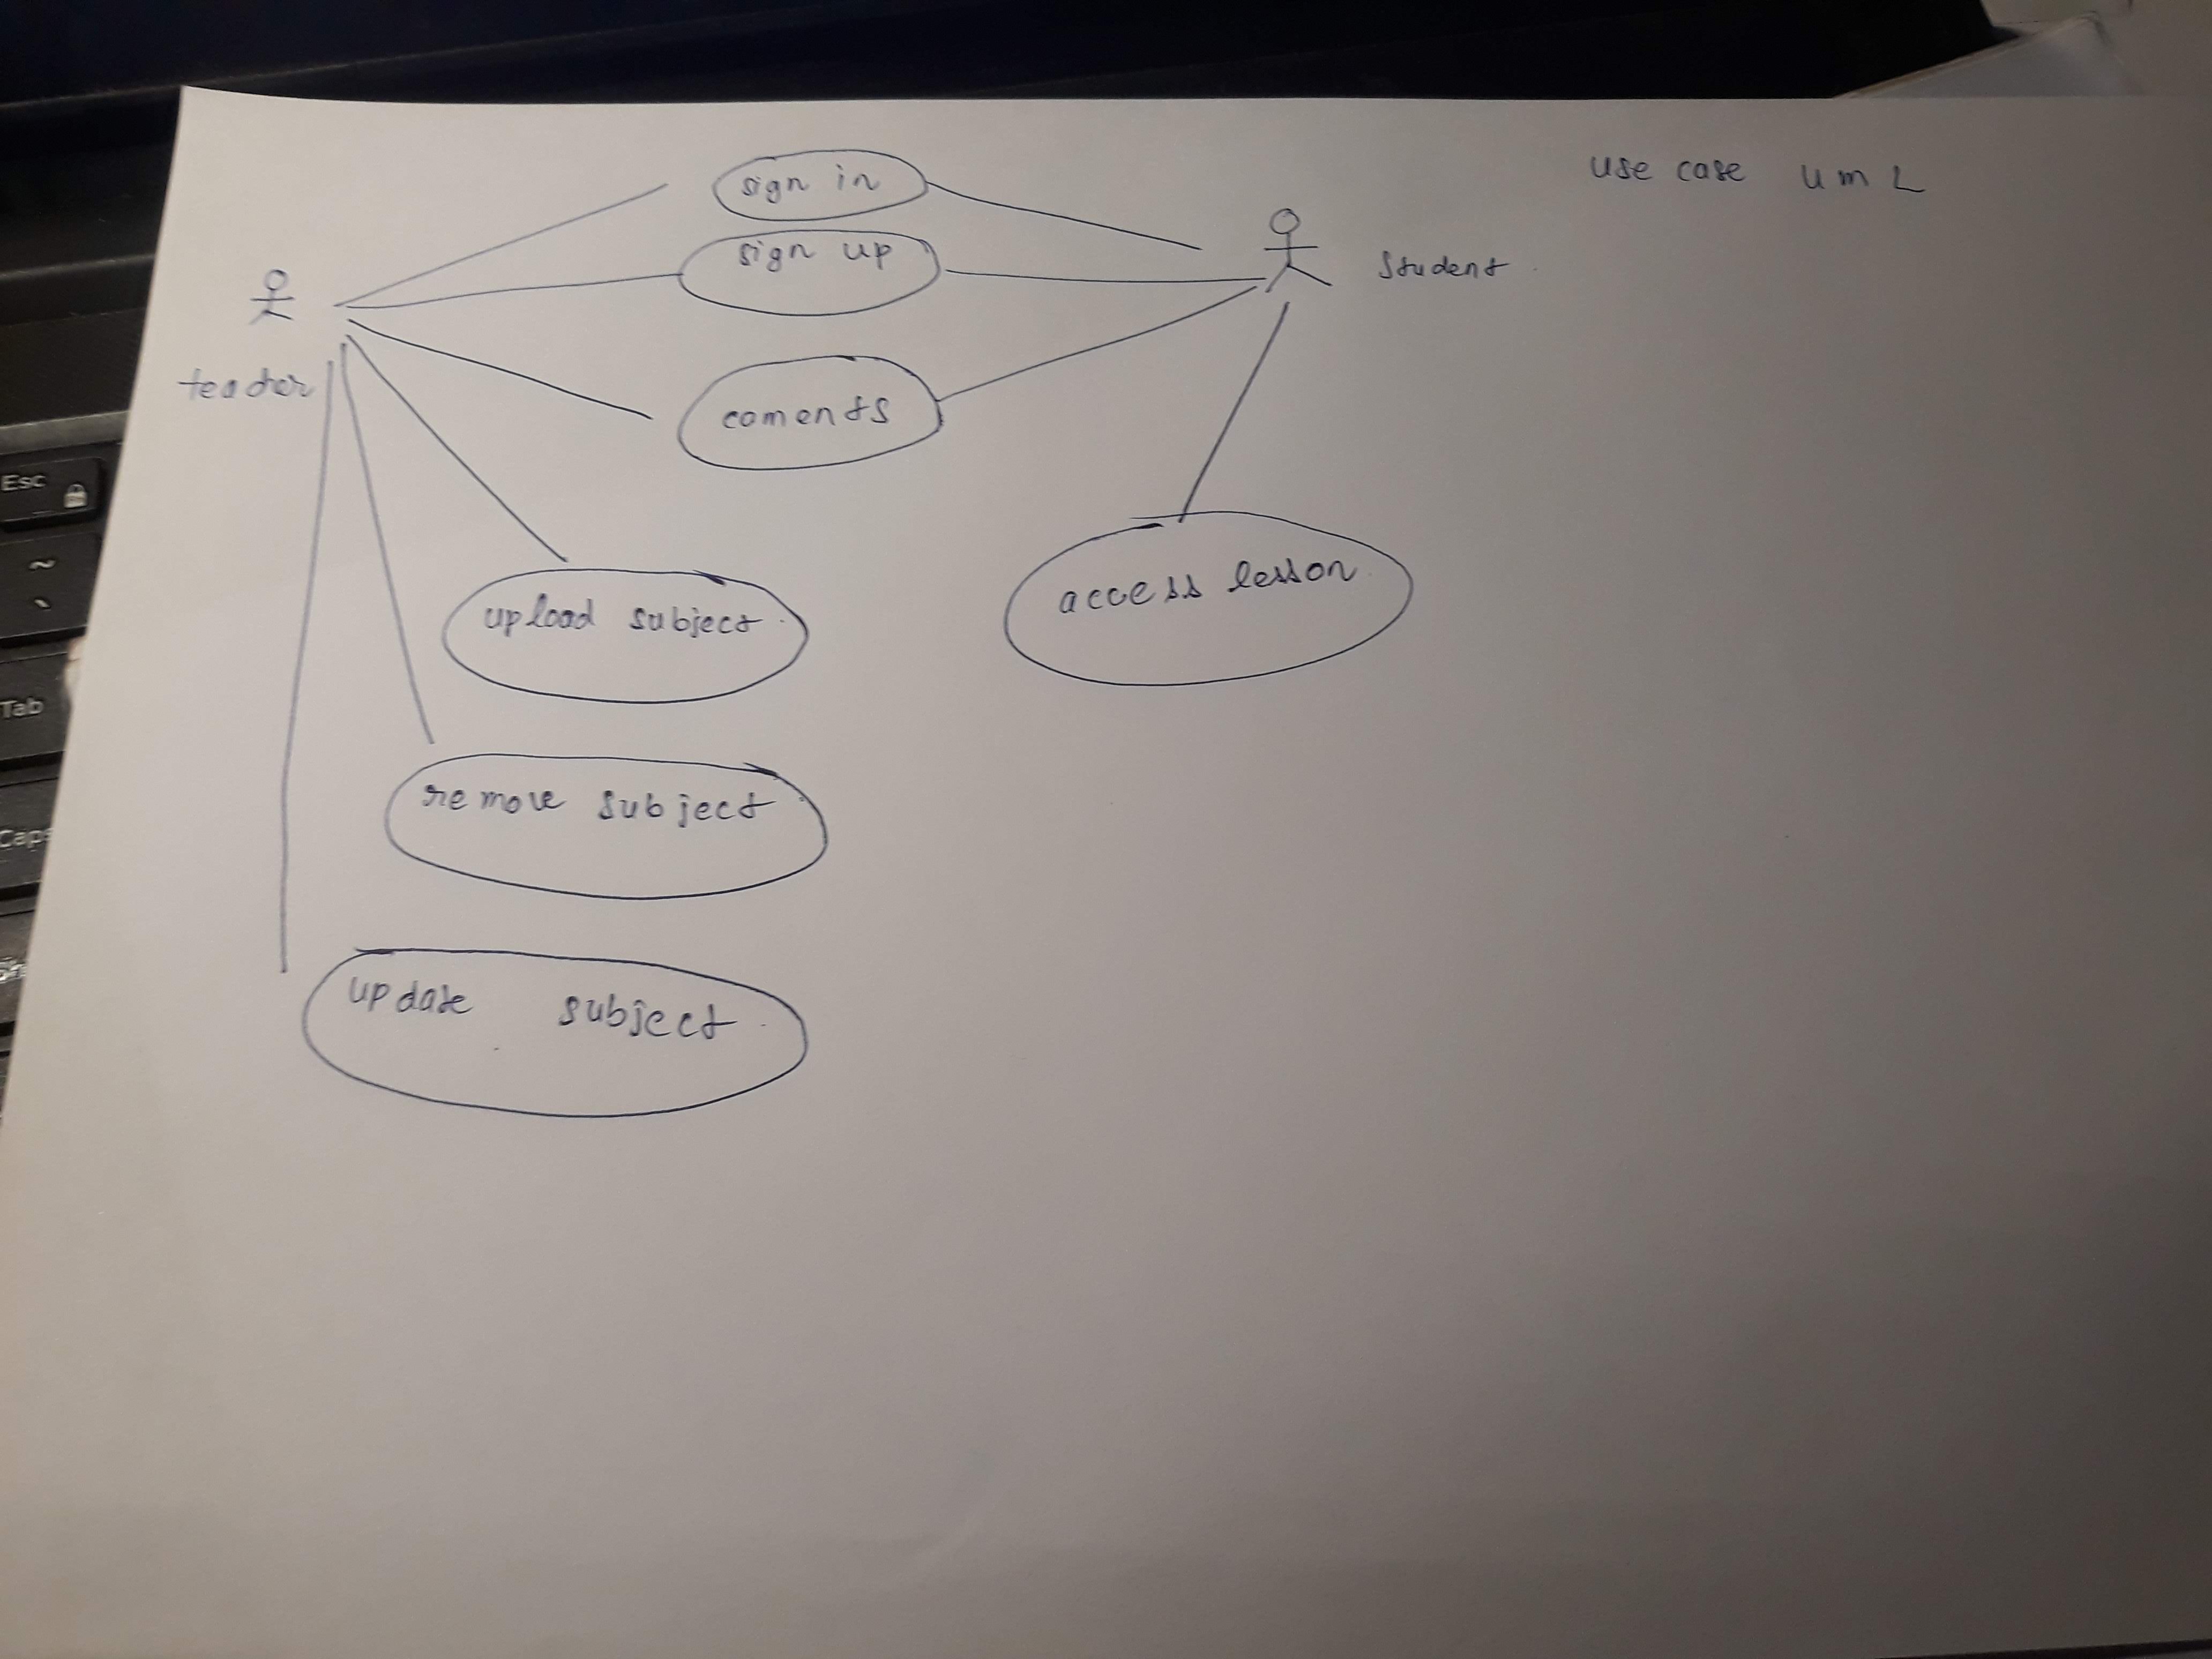 use case UML
sign in
sign up
Student
teacher
coments
access lesson
upload subject
remove subject
update subject
Esc
~
Tab
Caps